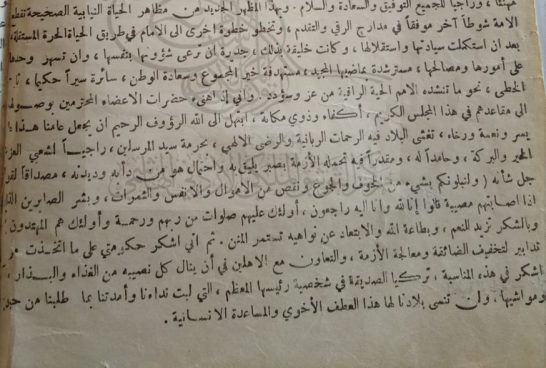 مهنئا ، وراجيا للجميع التوفيق والسعادة والسلام . وبهذا المظهر الجديد من مظاهر الحياة النيابية الصحيحة تقطع
الامة شوطا آخر موفقا في مدارج الرقي والتقدم ، وتخطو خطوة اخرى الى الامام في طريق الحياة الحرة المستقلة
بعد ان استكملت سيادتها واستقلالها ، وكانت خليقة بذلك ، جديرة ان ترعى شؤونها بنفسها ، وان تسهر وحدها
على أمورها ومصالحها ، مسترشدة بماضيها المجيد ، مستهدفة خير المجموع وسعادة الوطن ، سائرة سيرا حكيما ،
الخطى ، نحو ما تنشده الامم الحية الراقية من عز وسؤدد . واني اذ اهنىء حضرات الاعضاء المحترمين
الى مقاعدهم في هذا المجلس الكريم ، أكفاء وذوي مكانة ، ابتهل الى الله الرؤوف الرحيم ان يجعل عامنا هذا
يسر ونعمة ورخاء ، تغشى البلاد فيه الرحمات الربانية والرضى الالهي ، بحرمة سيد المرسلين ، راجيا لشعبي
الخير والبركة ، وحامدا له ، ومقدرا فيه تحمله الأزمة بصبر واحتمال هو من دأبه وديدنه ، مصداقا
جل شأنه ( ولنبلونكم بشيء من الخوف والجوع ونقص من الاموال والانفس والثمرات ، وبشر الصابرين
اذا اصابتهم مصيبة قالوا إنا لله وانا اليه راجعون ، أولئك عليهم صلوات من ربهم ورحمة وأولئك هم المهتدون
وبالشكر تزيد النعم ، وبطاعة الله والابتعاد عن نواهيه تستمر المنن . ثم اني اشكر حكومتي على ما اتخذت من
تدابير لتخفيف الضائقة ومعالجة الأزمة ، والتعاون مع الاهلين في أن ينال كل نصيبه من الغذاء والبذار ،
اشكر في هذه المناسبة ، تركيا الصديقة في شخصية رئيسها المعظم ، التي لبت نداءنا وأمدتنا بما طلبنا من
ومواشيها ، ولن تنسى بلادنا لها هذا العطف الأخوي والمساعدة الانسانية .